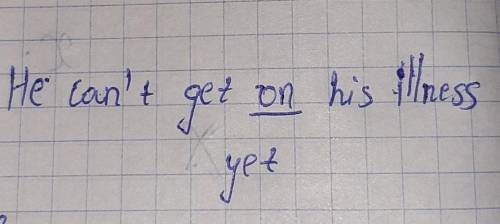 He can't get on his illness
yet